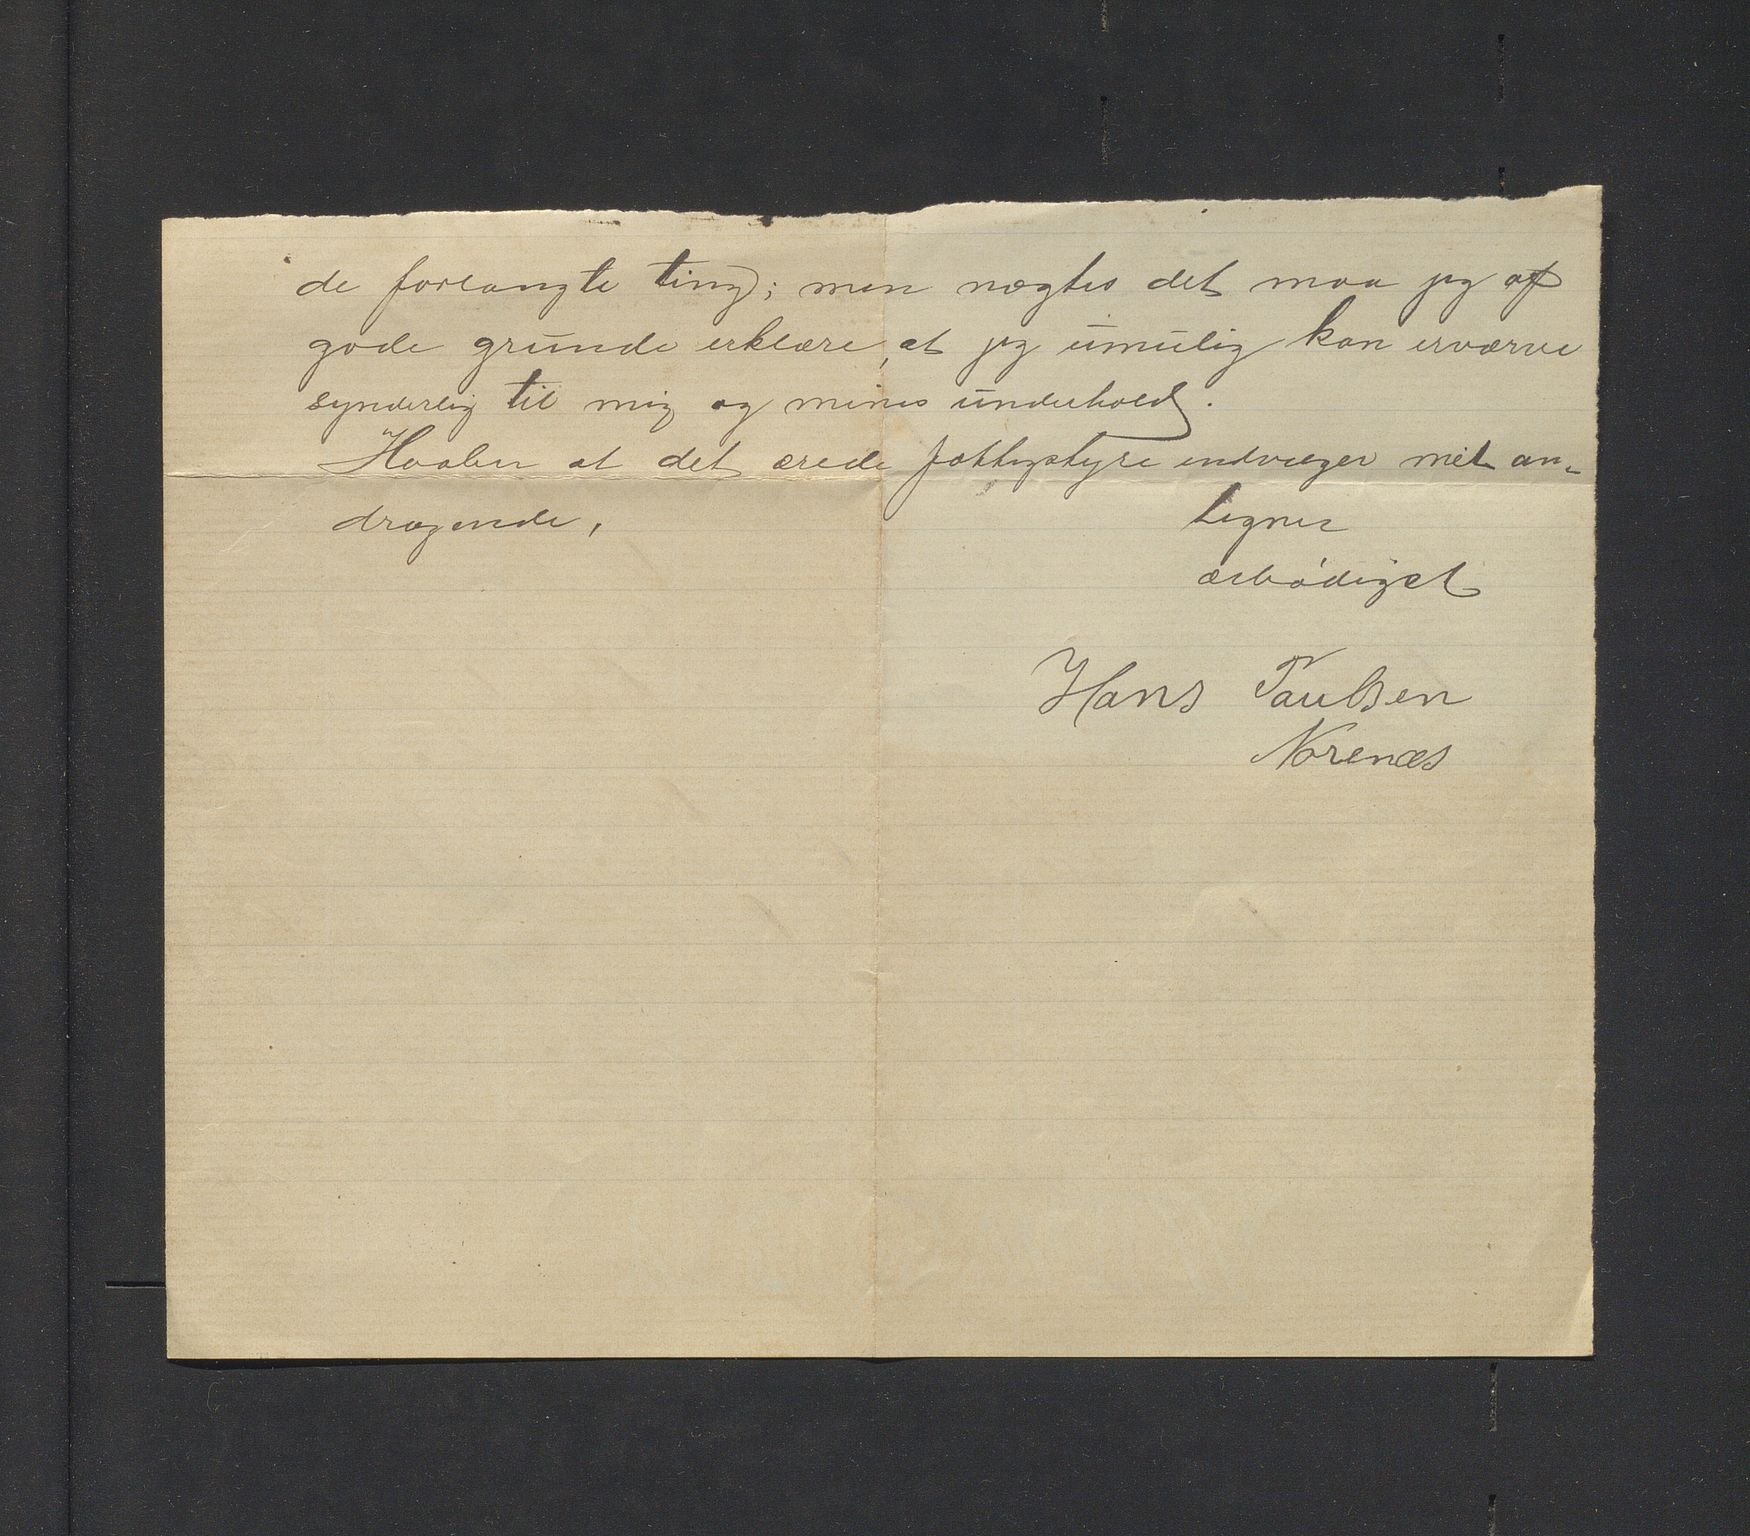 de forlangte ting; men nægtes det maa jeg af
gode grunde erklære, at jeg umulig kan erværve
synderlig til mig og mines underhold.
Haaber at det ærede fattigstyre indvilger mit an-
dragende,
tegner
ærbødigst
Hans Paulsen
Norenæs